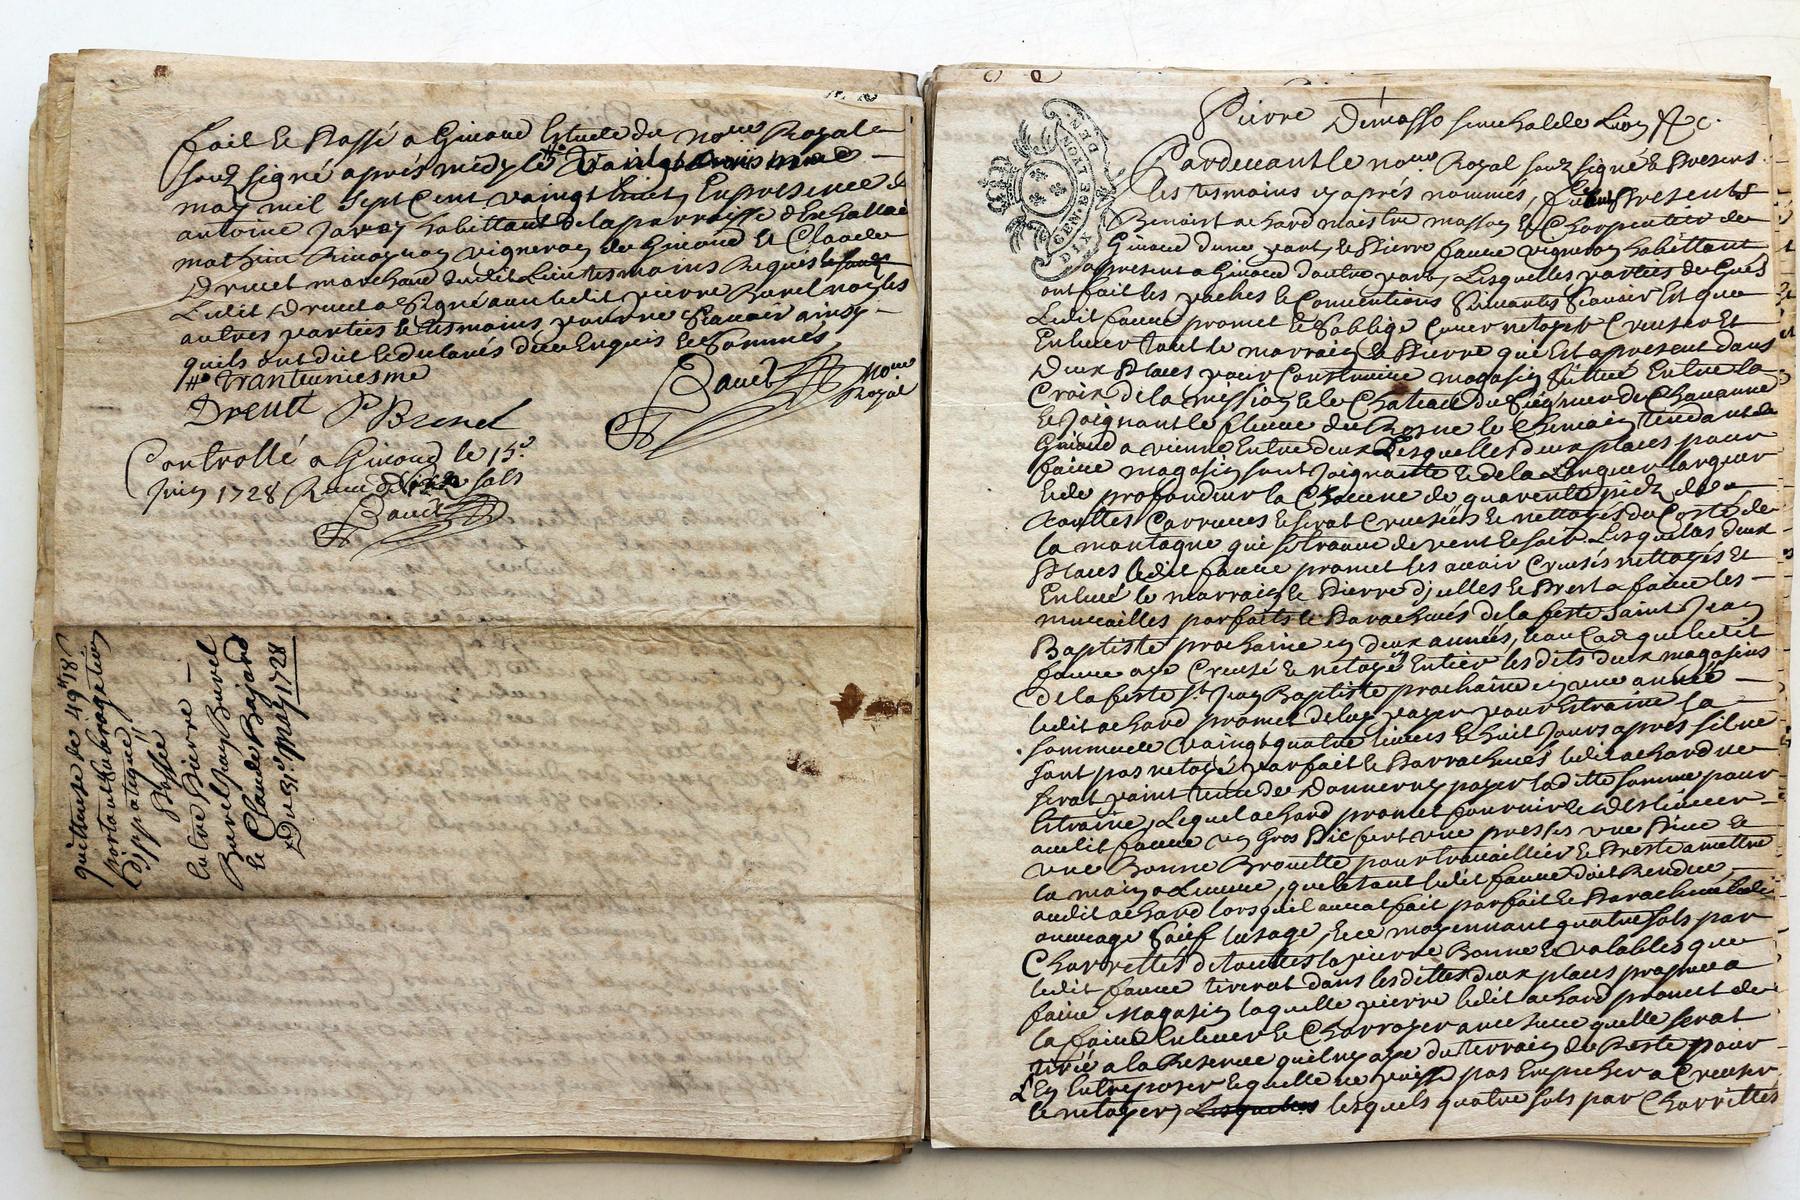 fait et Passé a Givord Estude du no.re Royal
souz signé après midy le # vaingt
may mil sept Cent vaingt huict En presence de
antoine Javoy habittant de la parroisse d'Echallas
mathieu vigneron de Givord et Claude
Druet marchand dudit Lieu tesmoins Requis
Ledit Druet a Signé avec ledit pierre Burel non les
autres parties et tesmoins pour ne Scavoir ainsy
quils ont dit et declarés de ce Enquis et Sommés
# Trantuniesme
Dreutt P Burel
Royal
Controllé a Givord le 15.e
Juin 1728 Receu sols
quittance de 49 18
portant
Passée
Entre Pierre
Burel Jean Burel
et Claude Bajard
Du 31.e may 1728
GEN. DE LYON
DIX DEN.
Pierre Demasso senechal de Lion &c.
Pardevant le no.re Royal souz signé & Presens
les tesmoins cy après nommés, Presents
Benoist achard maistre masson & Charpentier de
Givord d'une part, & Pierre faure vigneron habittant
apresent a Givord d'autre part, Lesquelles parties de Grés
ont fait les paches & Conventions Suivantes Scavoir Est que
Ledit faure promet & S'obblige Curer netoyer Creuser Et
Enlever tout le marrain & Pierre qui Est apresent dans
Deux Places pour Construire magasin Scittué Entre la
Croix de la mission & le Chateau du Seigneur de Chavanne
& Joignant le fleuve du Rosne le Chemain tendant de
Givord a vienne Entre deux Lesquelles deux places pour
faire magasin sont Joignante & de la Longueur largeur
& de profondeur la Chacune de quarente piedz de
touttes Carrures & serat Creusées & nettoyés du Costé de
la montagne qui se trouve de vent & soir Lesquelles deux
Places ledit faure promet les avoir Creusés nettoyés &
Enlevé le marrain & Pierre d'icelles & Prest a faire les
murailles parfaits & Parachevés de la feste Saint Jean
Baptiste prochaine en deux années, & au Cas que ledit
faure aye Creusé & netoyé En Entier les dits deux magasins
de la feste S.t Jean Baptiste prochaine en une année
ledit achard promet de luy payer pour Estraine la
somme de vaingt quatre livres & huit Jours après sil ne
sont pas netoyé parfait & Parrachevés ledit achard ne
serat point tenu de Donner ny payer laditte somme pour
Estraine, Lequel achard promet fournir & Deslivrer
audit faure un Gros Pic fert une presses une Pince &
une Bonne Brouette pour travaillier & Preste a mettre
la main a Leuvre, que le tout ledit faure doit Rendre
audit achard lorsquil aurat fait parfait & Parachevé ledit
ouvrage Sauf lusage, & ce moyennant quatre sols par
Charrettes de touttes la pierre Bonne & valables que
ledit faure tirerat dans lesdittes deux places propre a
faire Magasin laquelle pierre ledit achard promet de
la faire Enlever & Charroyer a mesure quelle serat
tirée a la Reserve quil ny aye du terrain de Reste pour
L'En Entreposer & quelle ne puisse pas Empecher a Creuser
& netoyer, lesquels quatre sols par Charrettes